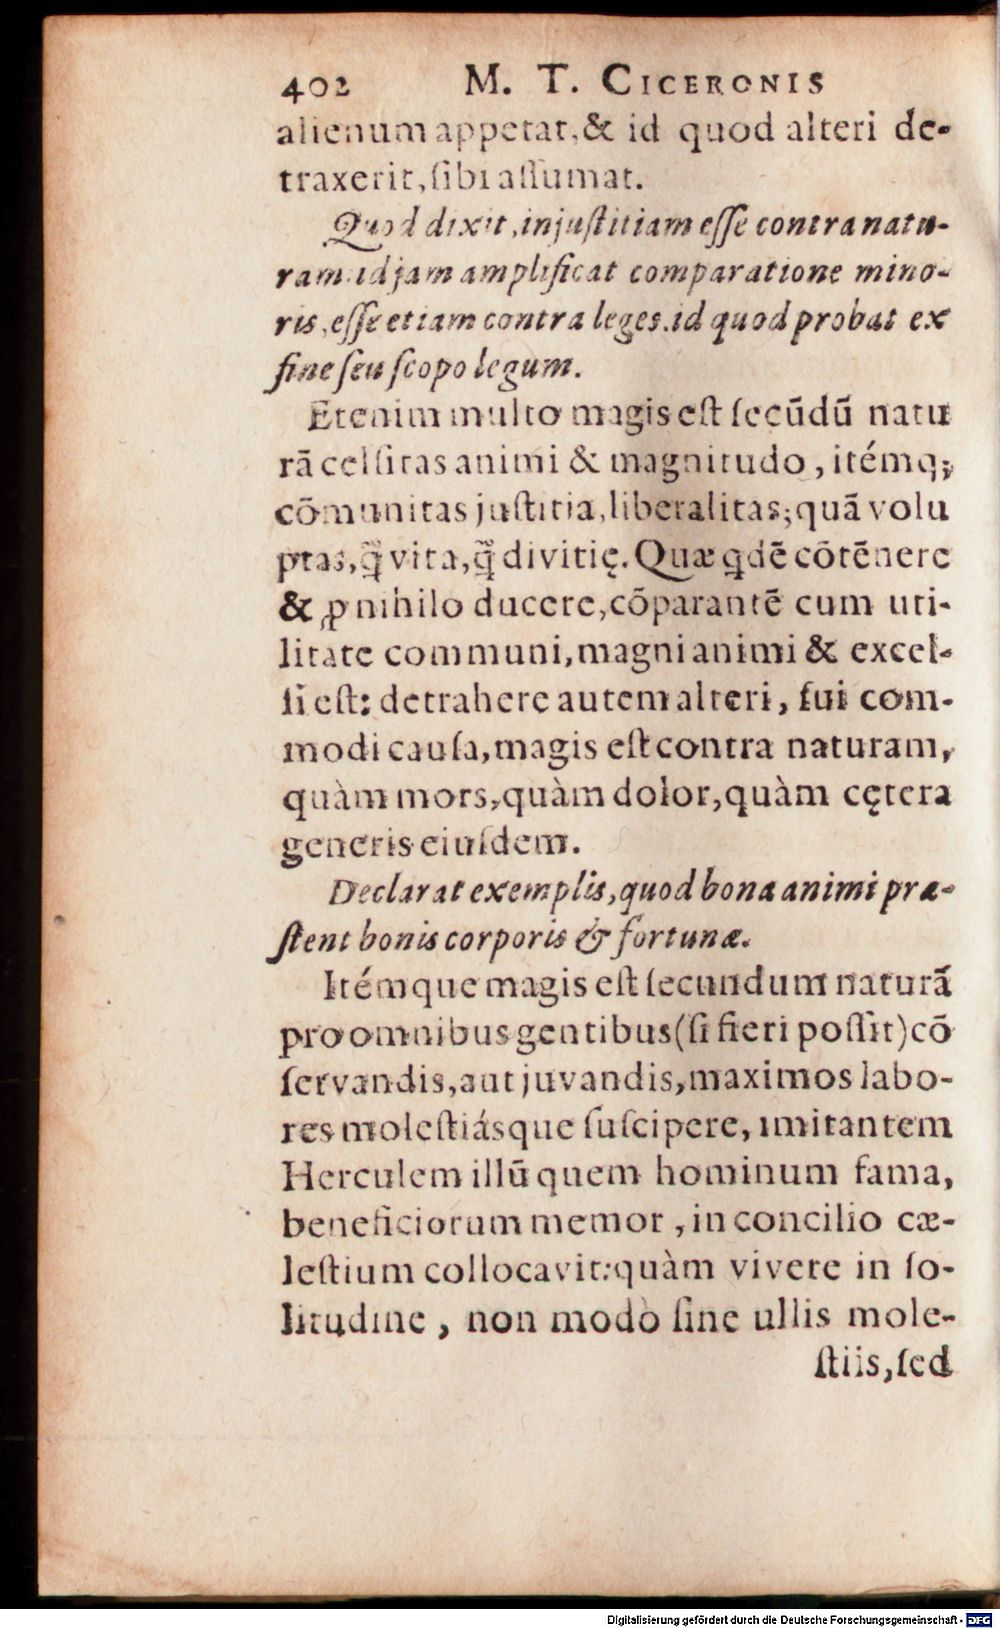 402 M. T. CICERONIS
alienum appetat, & id quod alteri de-
traxerit, ſibi aſſumat.
Quod dixit, injuſtitiam eſſe contra natu-
ram: id jam amplificat comparatione mino-
ris, eſſe etiam contra leges. id quod probat ex
fine ſeu ſcopo legum.
Etenim multo magis eſt ſecūdū natu
rā celſitas animi & magnitudo, itémq;
cōmunitas juſtitia, liberalitas; quā volu
ptas, q̃ vita, q̃ divitię. Quæ qdē cōtēnere
& ꝓ nihilo ducere, cōparantē cum uti-
litate communi, magni animi & excel-
ſi eſt: detrahere autem alteri, ſui com-
modi cauſa, magis eſt contra naturam,
quàm mors, quàm dolor, quàm cętera
generis eiuſdem.
Declarat exemplis, quod bona animi præ-
ſtent bonis corporis & fortunæ.
Itémque magis eſt ſecundum naturā
pro omnibus gentibus (ſi fieri poſſit) cō
ſervandis, aut juvandis, maximos labo-
res moleſtiásque ſuſcipere, imitantem
Herculem illū quem hominum fama,
beneficiorum memor, in concilio cæ-
leſtium collocavit: quàm vivere in ſo-
litudine, non modò ſine ullis mole-
ſtiis, ſed
Digitalisierung gefördert durch die Deutsche Forschungsgemeinschaft - DFG